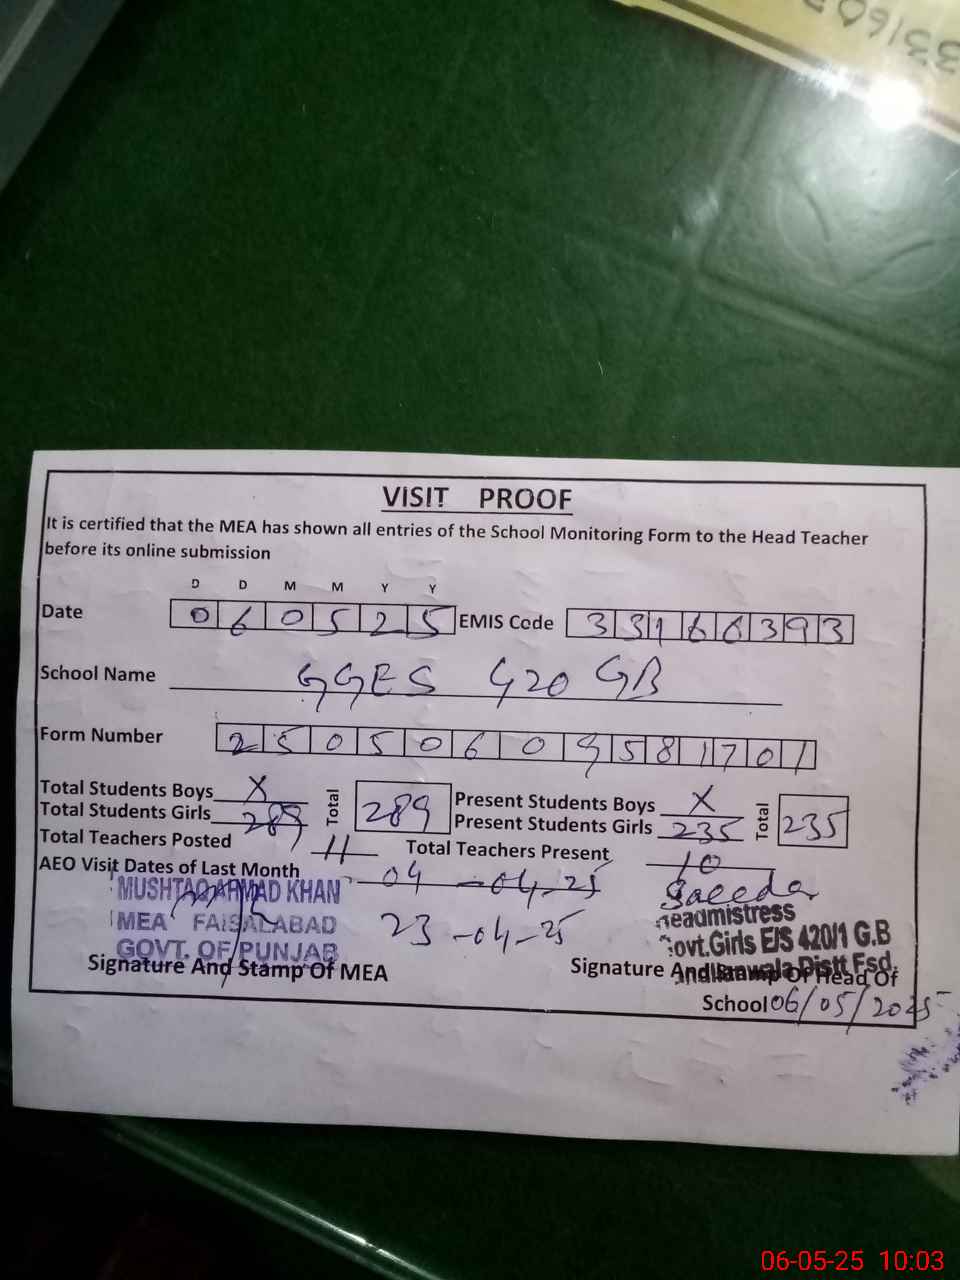 VISIT PROOF
It is certified that the MEA has shown all entries of the School Monitoring Form to the Head Teacher
before its online submission
D D M M Y Y
Date 0 6 0 5 2 5 EMIS Code 3 3 1 6 6 3 9 3
School Name GGES 420 GB
Form Number 2 5 0 5 0 6 0 9 5 8 1 7 0 1
Total Students Boys X Total 289 Present Students Boys X Total 235
Total Students Girls 289 Present Students Girls 235
Total Teachers Posted 11 Total Teachers Present 10
AEO Visit Dates of Last Month 04-04-25
23-04-25
MUSHTAQ AHMAD KHAN
MEA FAISALABAD
GOVT. OF PUNJAB
Signature And Stamp Of MEA
Saeeda
Headmistress
Govt.Girls E/S 420/1 G.B
Distt Fsd.
Signature And Stamp Of Head Of
School 06/05/2025
06-05-25 10:03